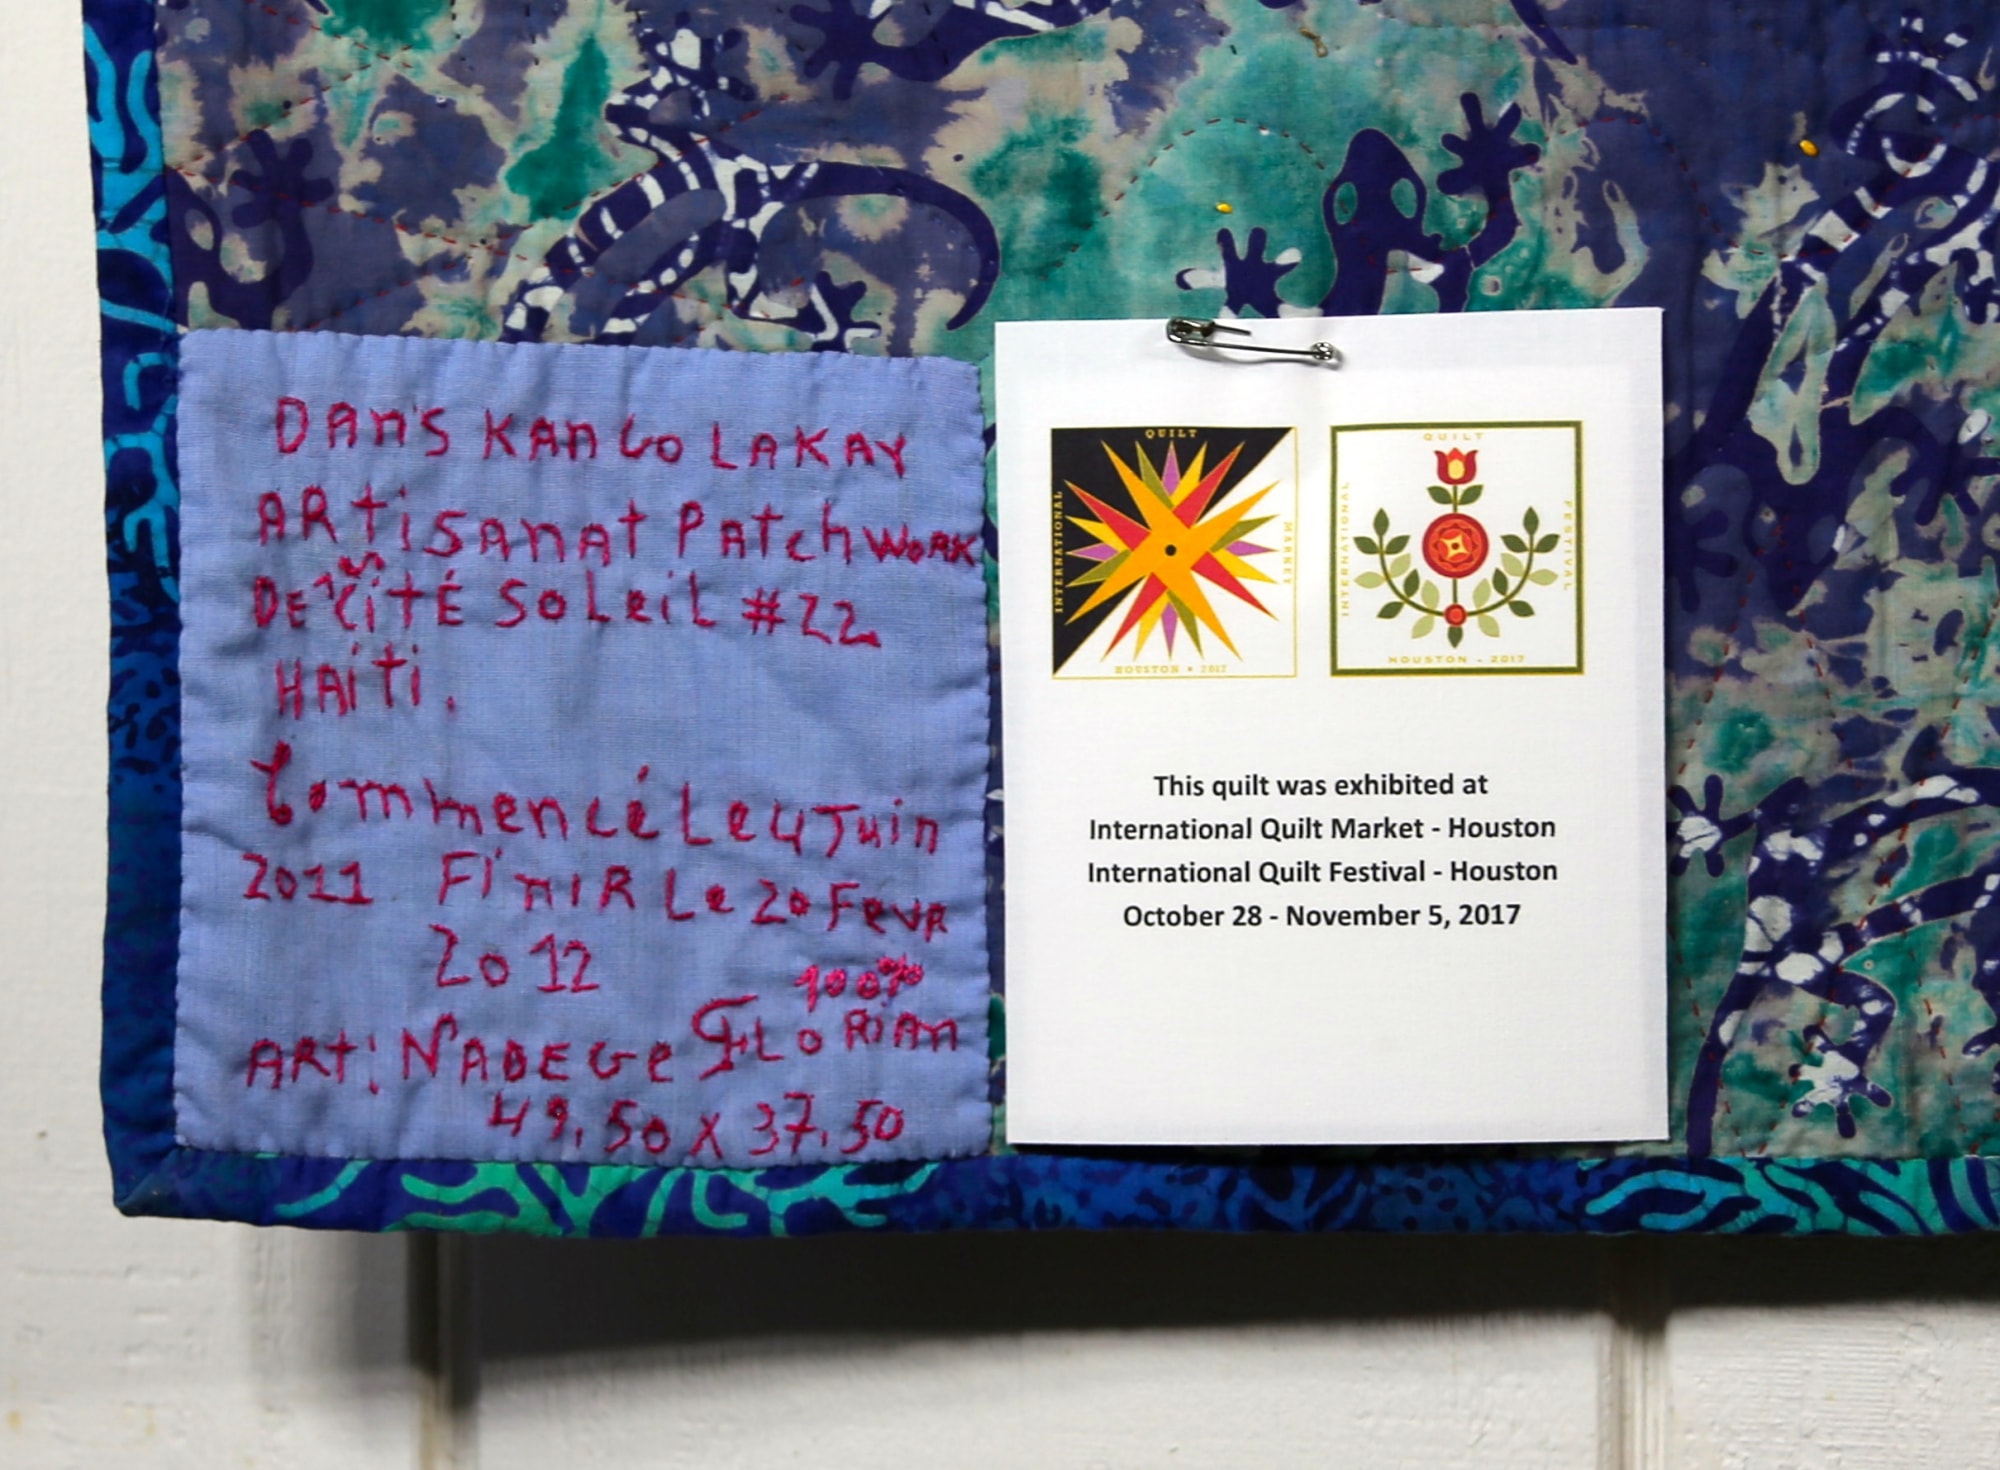 DAN'S KANGO LAKAY
ARTiSANAT PATchWORK
DE CiTÉ SOLeiL #22
HAiTi.
Commencé Le 4 Juin
2011 FiNiR Le 20 FevR
2012
100%
ART: NADEGe FLORiAN
49,50 X 37,50
QUILT
INTERNATIONAL
MARKET
HOUSTON • 2017
QUILT
INTERNATIONAL
FESTIVAL
HOUSTON - 2017
This quilt was exhibited at
International Quilt Market - Houston
International Quilt Festival - Houston
October 28 - November 5, 2017